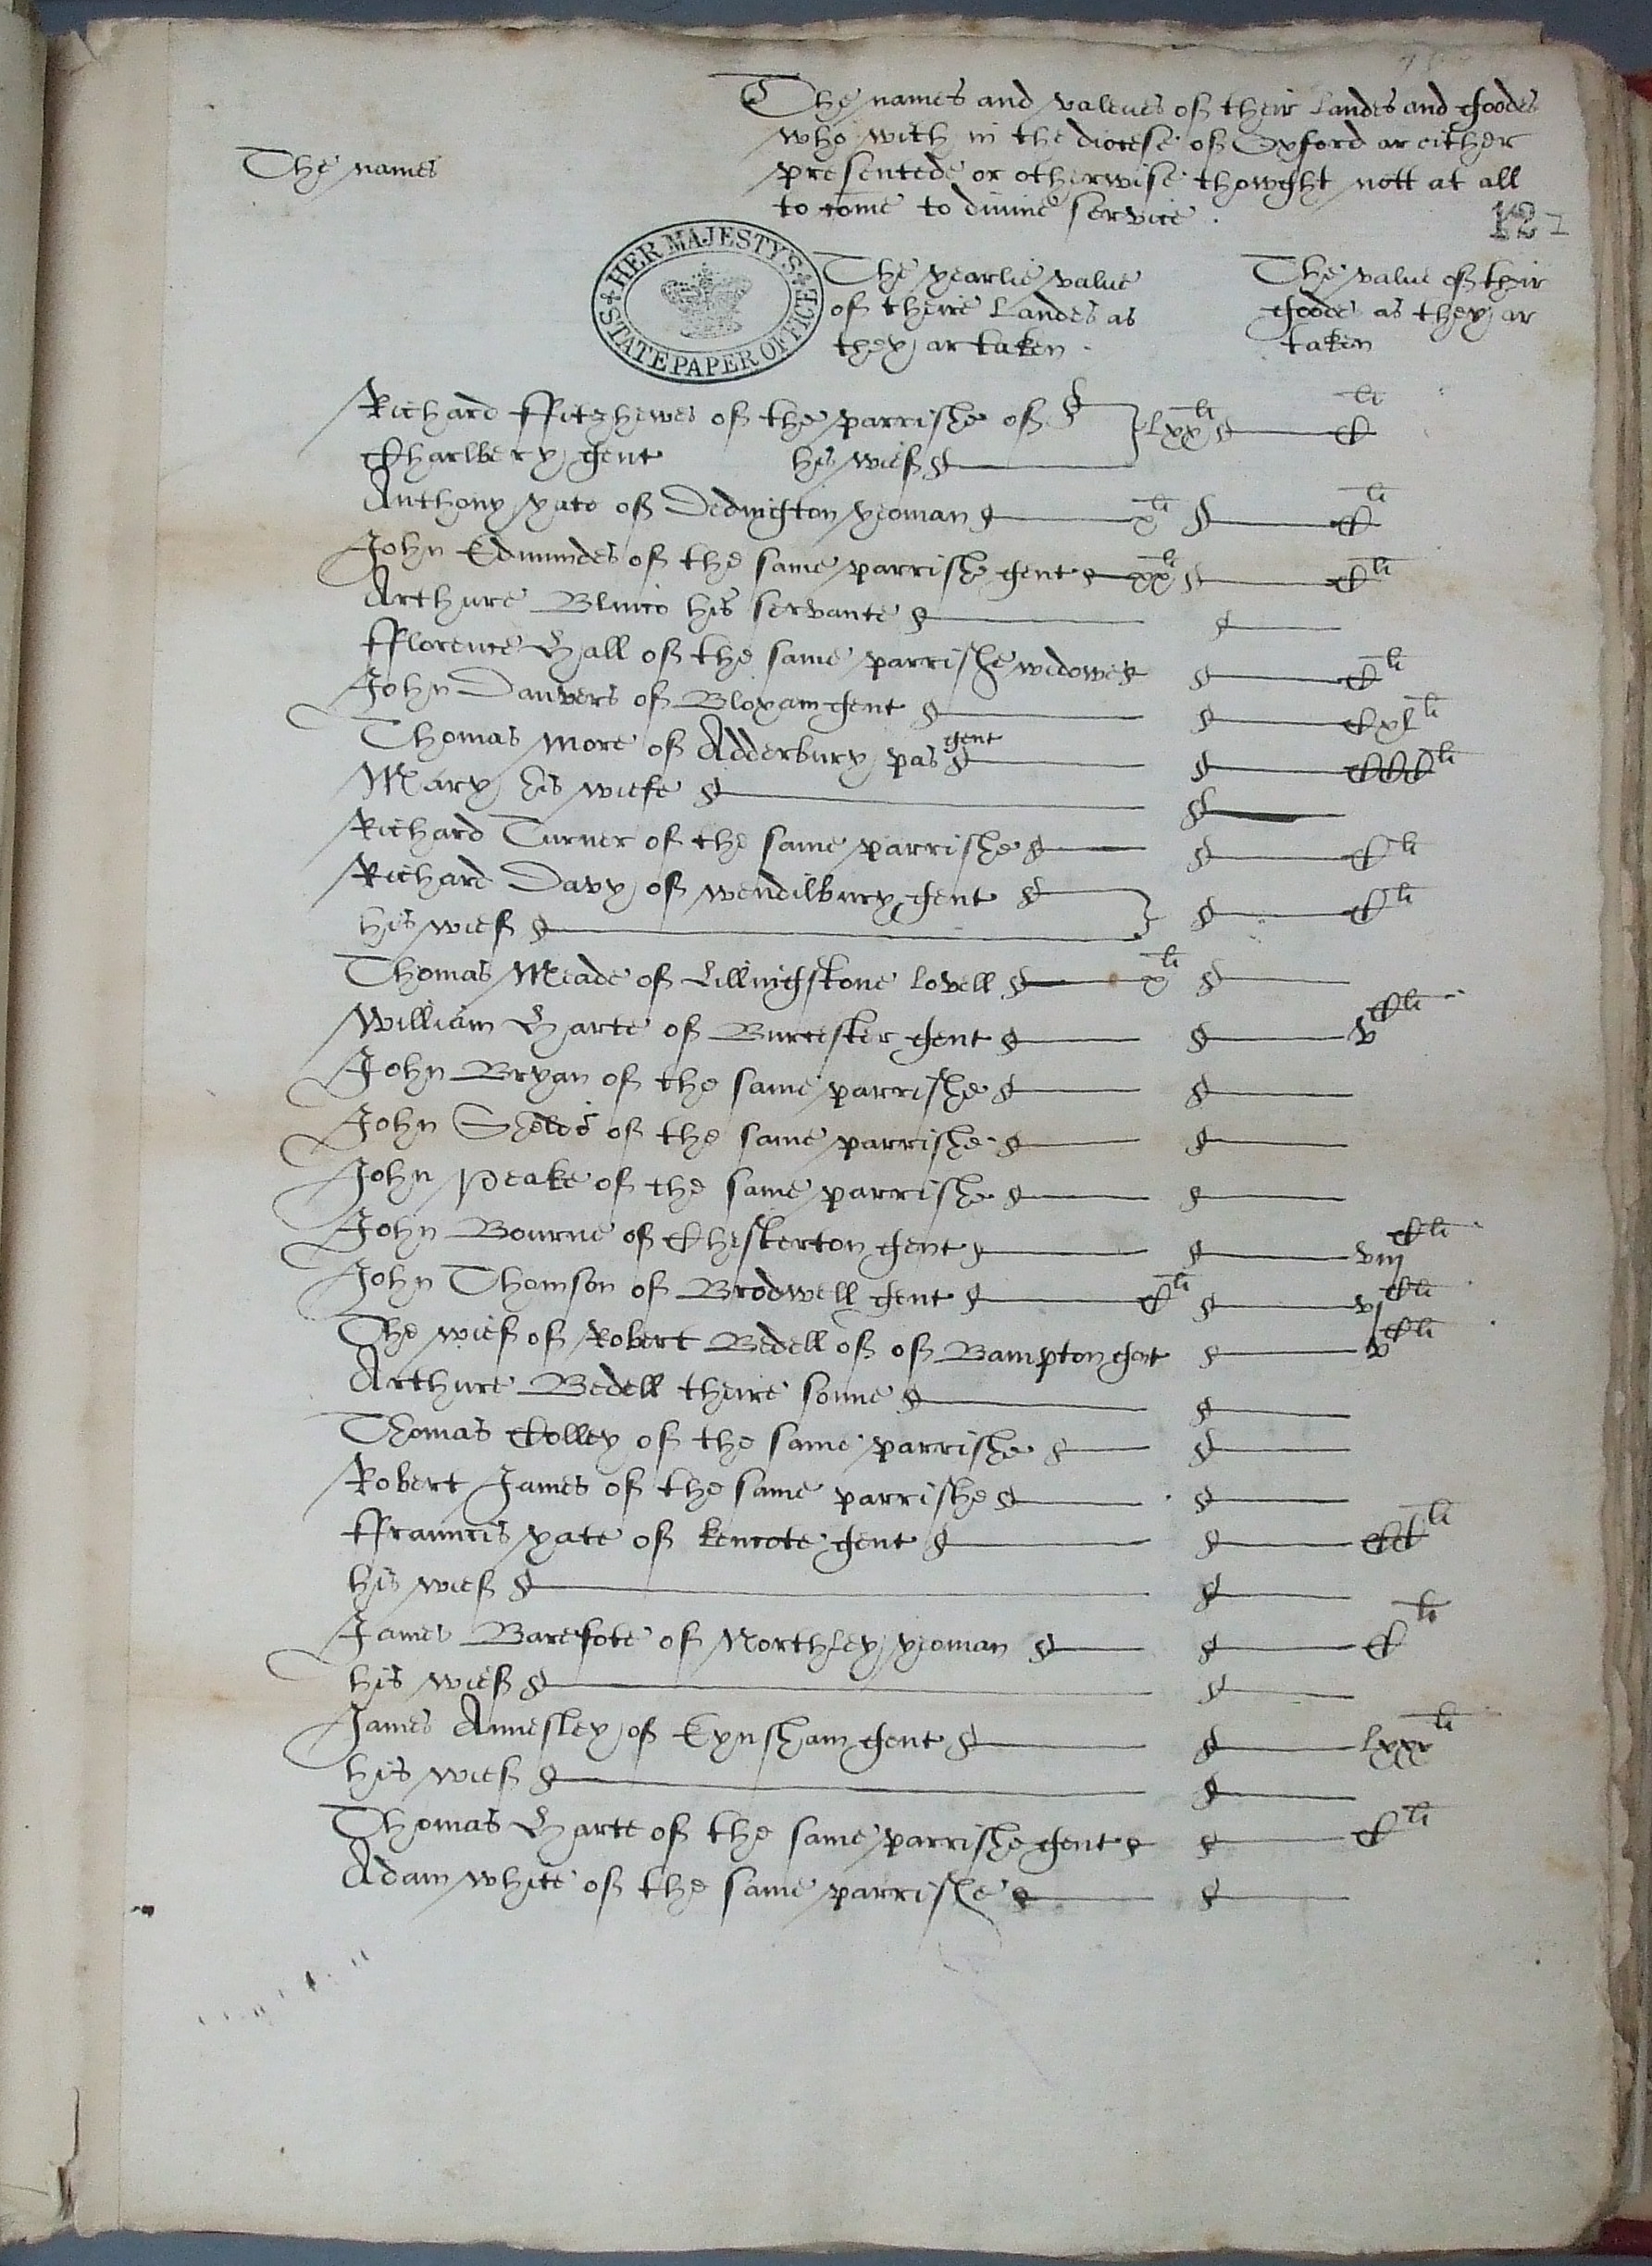 The names and valeues of their Landes and goodes
who with in the diocese of Oxford ar either
The names
presentede or otherwise thowght nott at all
to come to divine service .
12
HER MAJESTY'S STATE PAPER OFFICE
The yearlie value
of theire Landes as
they ar taken .
The value of their
goodes as they ar
taken
Richard ffitzhewes of the parrishe of
Charlbery gent his wief lxx li C li
Anthony yate of Dedington yeoman x li C li
John Edmundes of the same parrishe gent xx li C li
Arthure Blinco his servante
fflorence Hall of the same parrishe widowe C li
John Danvers of Bloxam gent Cxl li
Thomas More of Adderbury pas gent CCC li
Mary his wiefe
Richard Turner of the same parrishe C li
Richard Davy of wendilbury gent C li
his wief
Thomas Meade of Lillingstone Lovell x li
William Harte of Burcester gent v C li
John Bryan of the same parrishe
John of the same parrishe
John Peake of the same parrishe
John Bourne of Chesterton gent viij C li
John Thomson of Brodwell gent C li vj C li
The wief of Robert Bedell of of Bampton gent v C li
Arthure Bedell theire sonne
Thomas Colley of the same parrishe
Robert James of the same parrishe
ffrauncis yate of kencote gent CC li
his wief
James Barefote of Northley yeoman C li
his wief
James Annesley of Eynsham gent lxxx li
his wief
Thomas Harte of the same parrishe gent C li
Adam white of the same parrishe